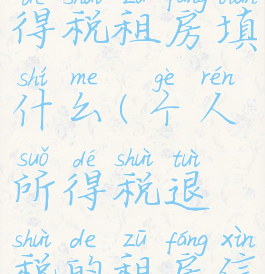 dé shuì zū fáng tián
得税租房填
shí me gè rén
什么(个人
suǒ dé shuì tuì
所得税退
shuì de zū fáng xìn
税的租房信